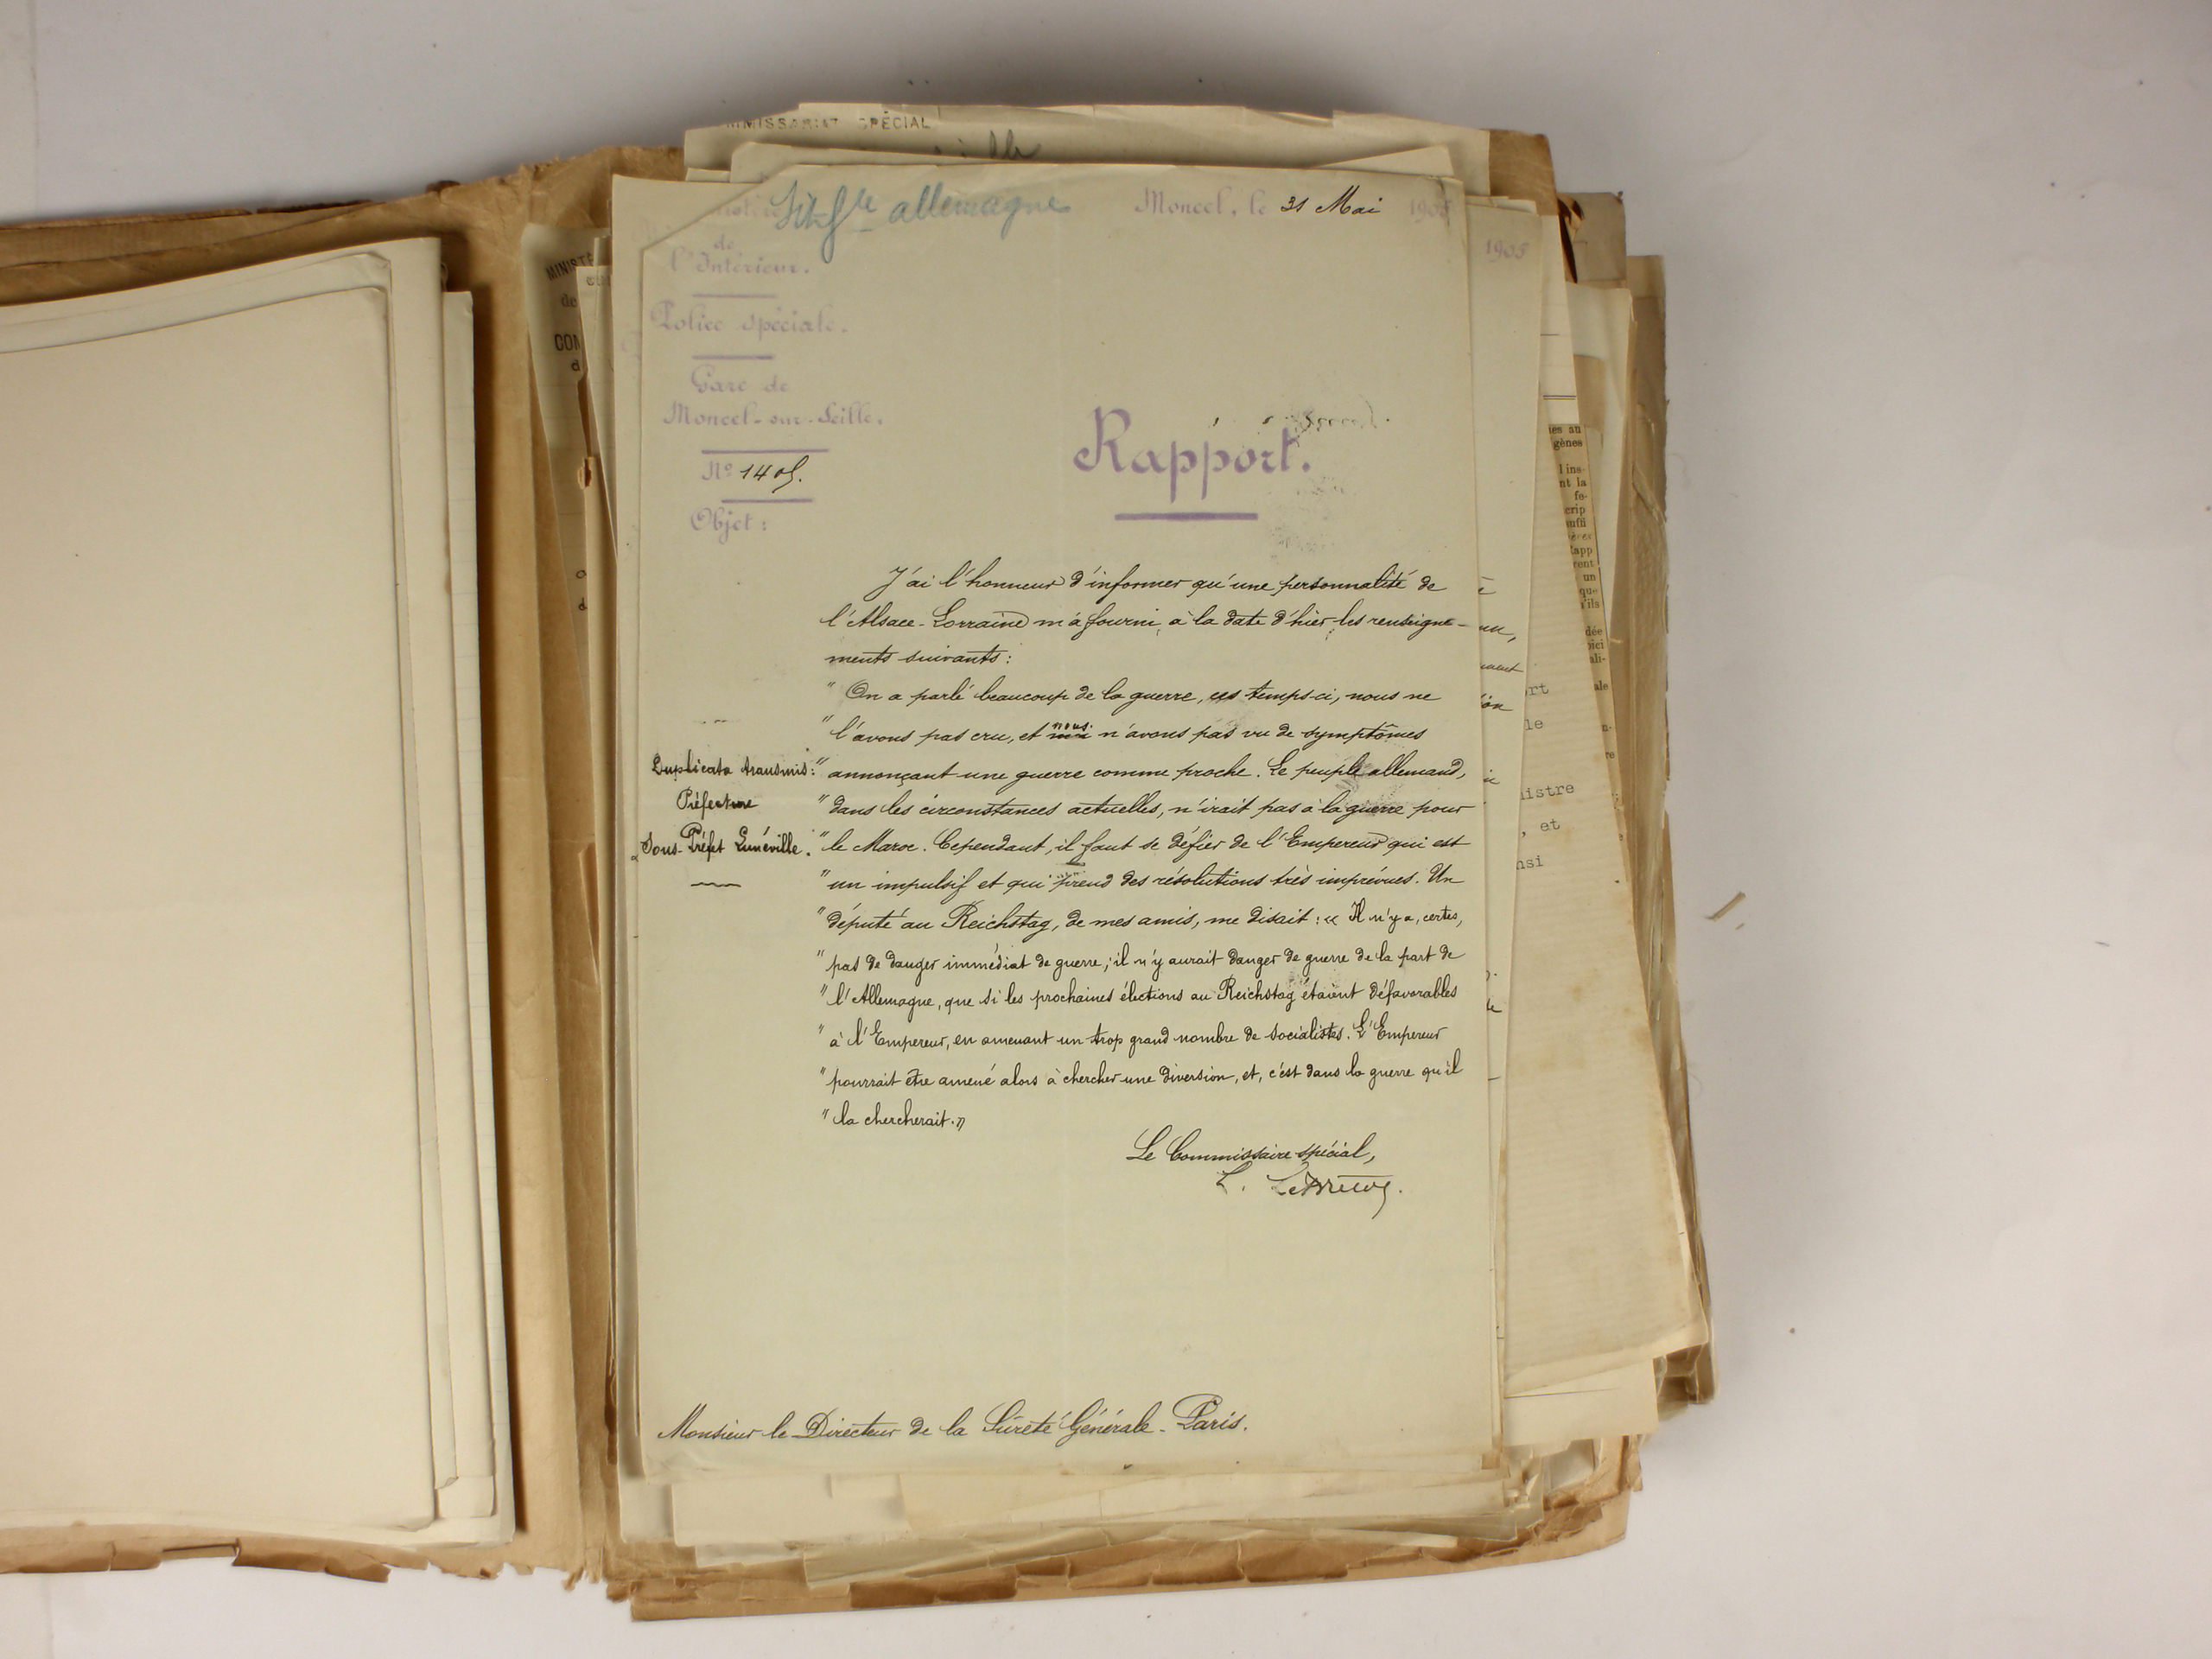 SPÉCIAL
allemagne
Moncel, le 31 Mai 190
de
l'Intérieur.
Police spéciale.
Gare de
Moncel-sur-Seille.
No 1405.
Objet :
Rapport.
J'ai l'honneur d'informer qu'une personnalité de
l'Alsace-Lorraine m'a fourni, à la date d'hier, les renseigne-
ments suivants :
" On a parlé beaucoup de la guerre, ces temps-ci, nous ne
" l'avons pas cru, et nous n'avons pas vu de symptômes
" annonçant une guerre comme proche. Le peuple allemand,
" dans les circonstances actuelles, n'irait pas à la guerre pour
" le Maroc. Cependant, il faut se défier de l'Empereur qui est
" un impulsif et qui prend des résolutions très imprévues. Un
" député au Reichstag, de mes amis, me disait : « Il n'y a, certes,
" pas de danger immédiat de guerre ; il n'y aurait danger de guerre de la part de
" l'Allemagne, que si les prochaines élections au Reichstag étaient défavorables
" à l'Empereur, en amenant un trop grand nombre de socialistes. L'Empereur
" pourrait être amené alors à chercher une diversion, et, c'est dans la guerre qu'il
" la chercherait. »
Duplicata transmis :
Préfecture
Sous-Préfet Lunéville.
Le Commissaire spécial,
L.
Monsieur le Directeur de la Sûreté Générale - Paris.
1905
MINISTÈ
de
CON
d
ort
le
istre
, et
nsi